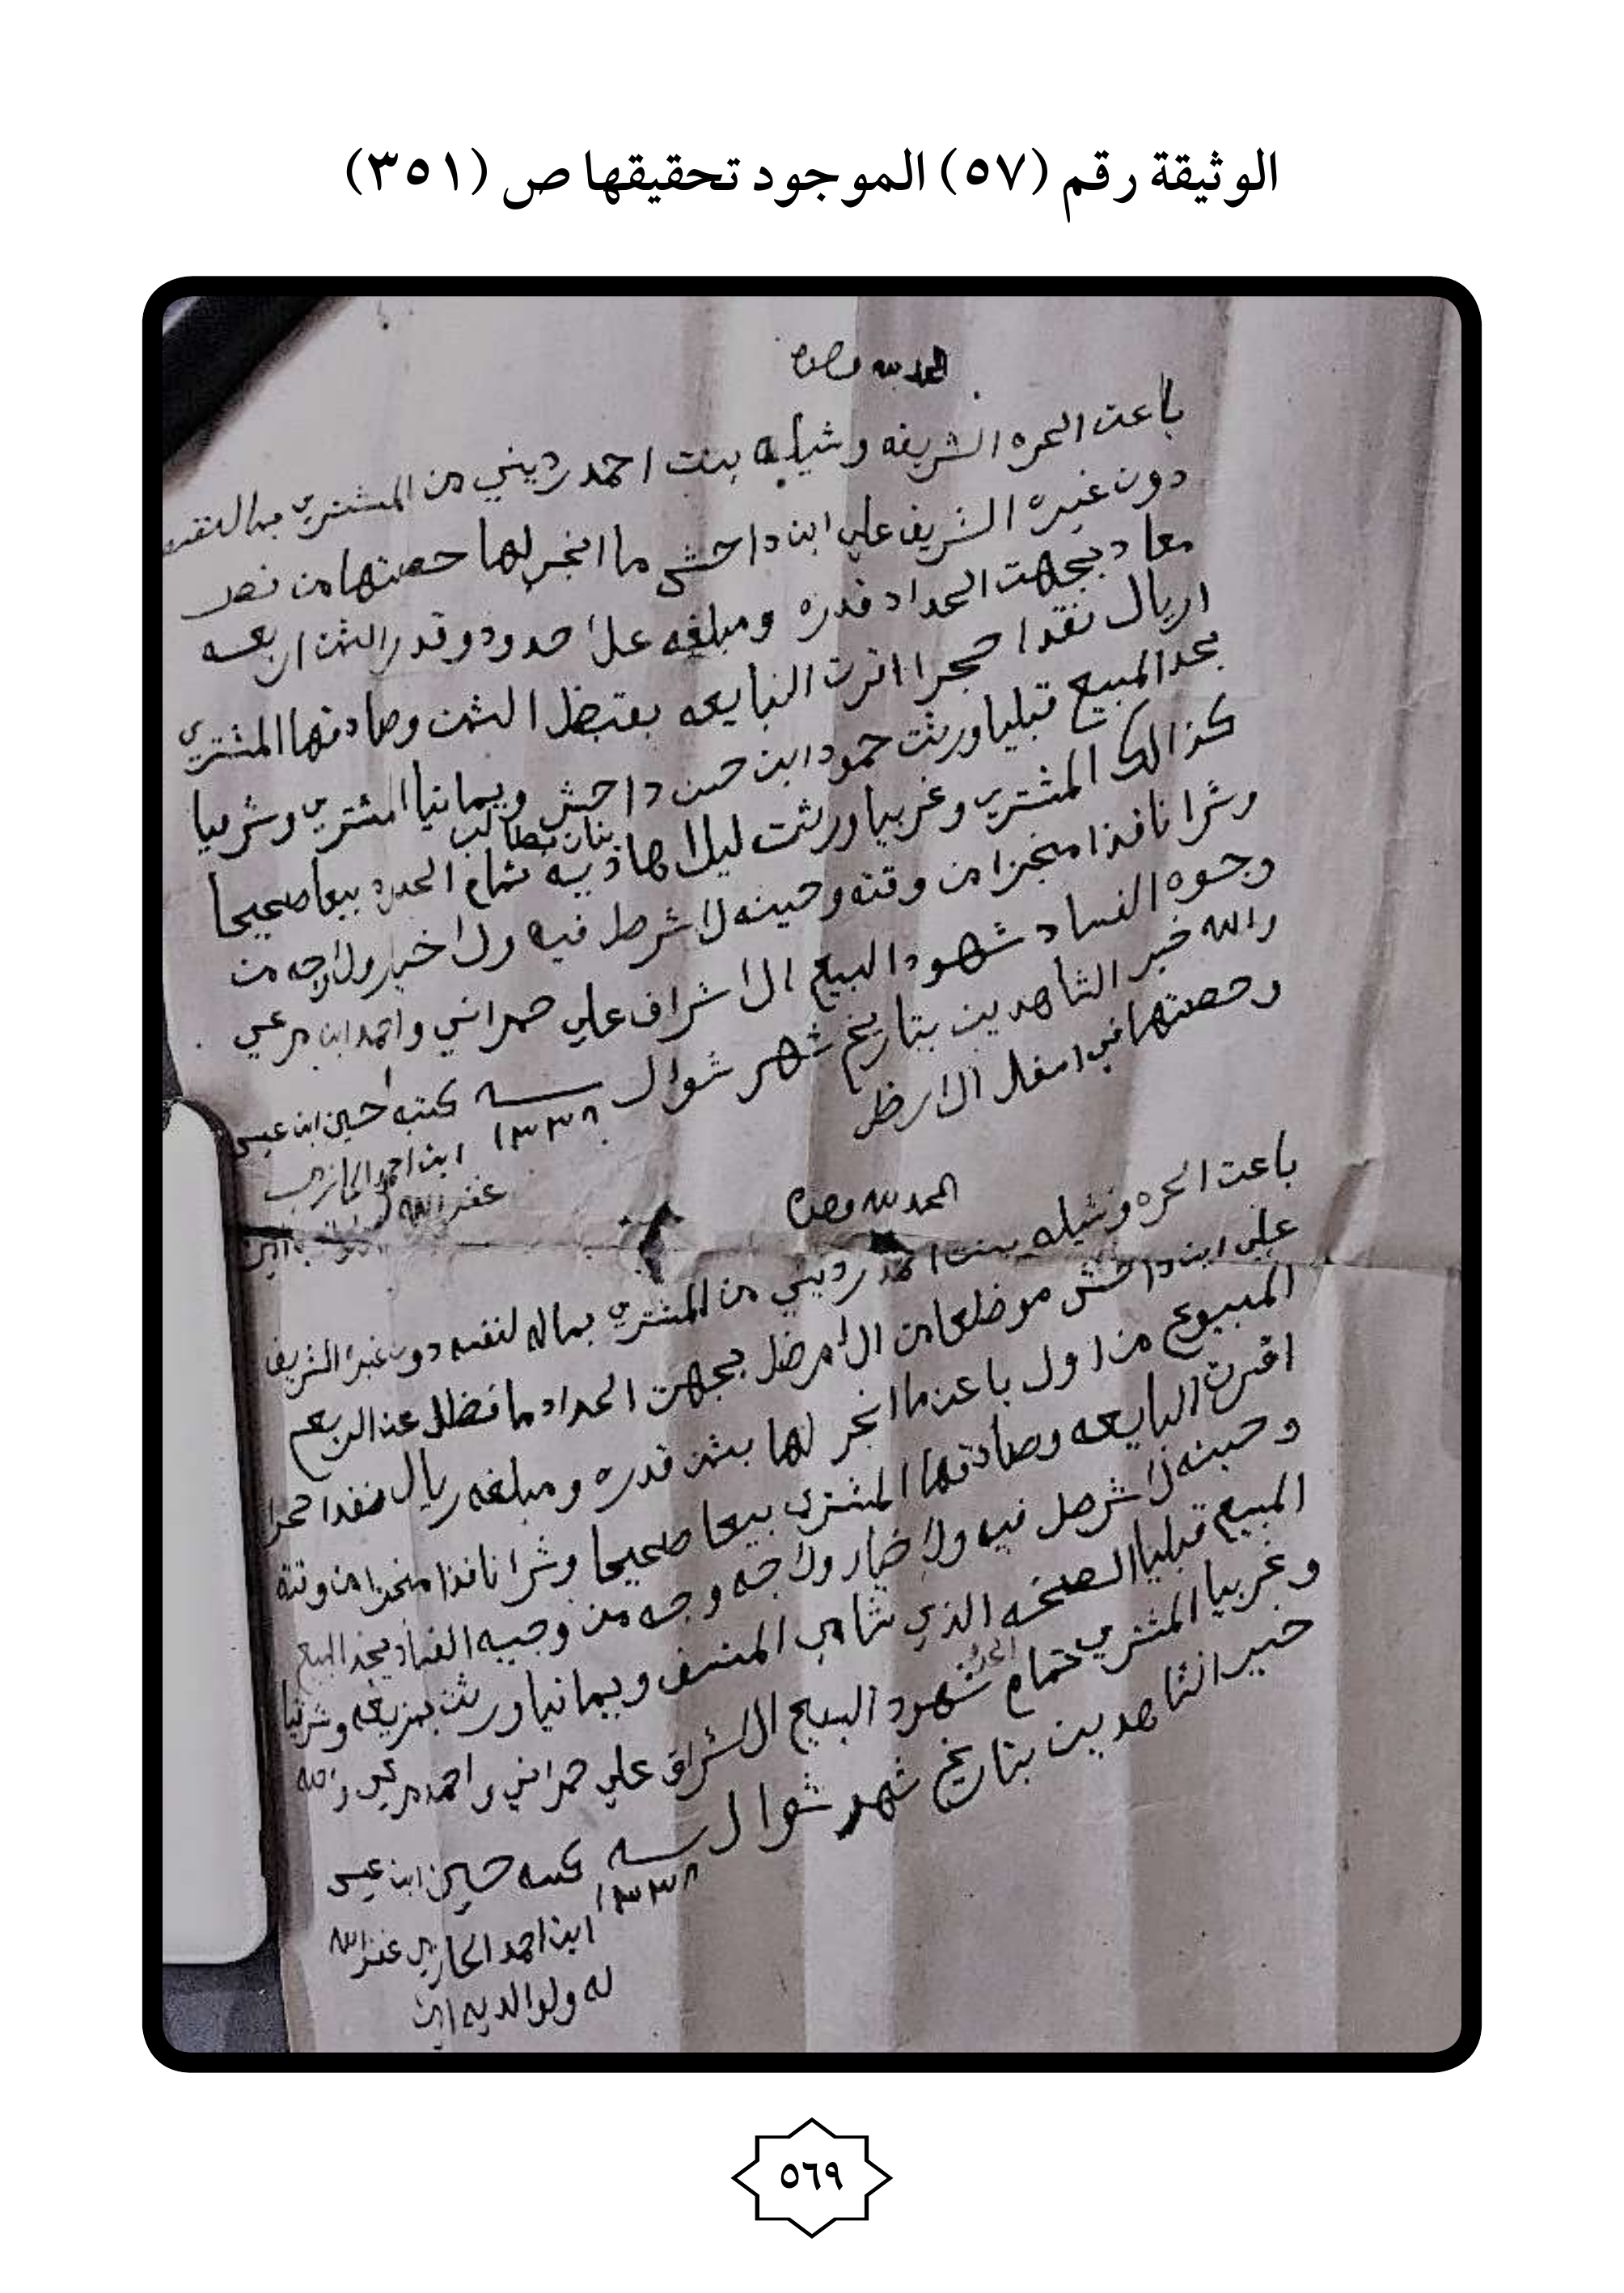 الوثيقة رقم (٥٧) الموجود تحقيقها ص (٣٥١)
الحمد لله وحده
باعت الحره الشريفه وشيله بنت احمد رديني من المشتري بماله لنفسه
دون غيره الشريف علي ابن داحش ما انجر لها حصتها من نصف
معاد بجهت الحداد قدره ومبلغه علا حدود وقدر الثمن اربعه
اريال نقدا حجرا اقرت البايعه بقبظ الثمن وصادقها المشتري
بحد المبيع قبليا ورثت حمود ابن حسن داحش ويمانيا المشتري وشرقيا
كذالك المشتري وغربيا ورثت ليلا هاديه بنات مطالب تمام الحدود بيعا صحيحا
وشرا نافذا منجزا من وقته وحينه لا شرط فيه ولا خيار ولا وجه من
وجوه الفساد شهود البيع الاشراف علي حمراني واحمد ابن مرعي
والله خير الشاهدين بتاريخ شهر شوال سنه ١٣٣٨ كتبه حسين ابن عيسى
وحصتها في اسفل الارظ
ابن احمد الحازمي
غفر الله له ولوالديه امين
الحمد لله وحده
باعت الحره وشيله بنت احمد رديني من المشتري بماله لنفسه دون غيره الشريف
علي ابن داحش موضعا من الارض بجهت الحداد ما فظل عن الربع
المبيوع من اول باعت ما انجر لها بثمن قدره ومبلغه ريال نقدا حجرا
اقرت البايعه وصادقها المشتري بيعا صحيحا وشرا نافذا منجزا من وقته
وحينه لا شرط فيه ولا خيار ولا وجه من وجيه الفساد بحد المبيع
المبيع قبليا الذي شامي ويمانيا ورثت وشرقيا
وغربيا المشتري تمام الحدود شهود البيع الاشراف علي حمراني واحمد مرعي والله
خير الشاهدين بتاريخ شهر شوال سنه ١٣٣٨ كتبه حسين ابن عيسى
ابن احمد الحازمي غفر الله
له ولوالديه امين
٥٦٩